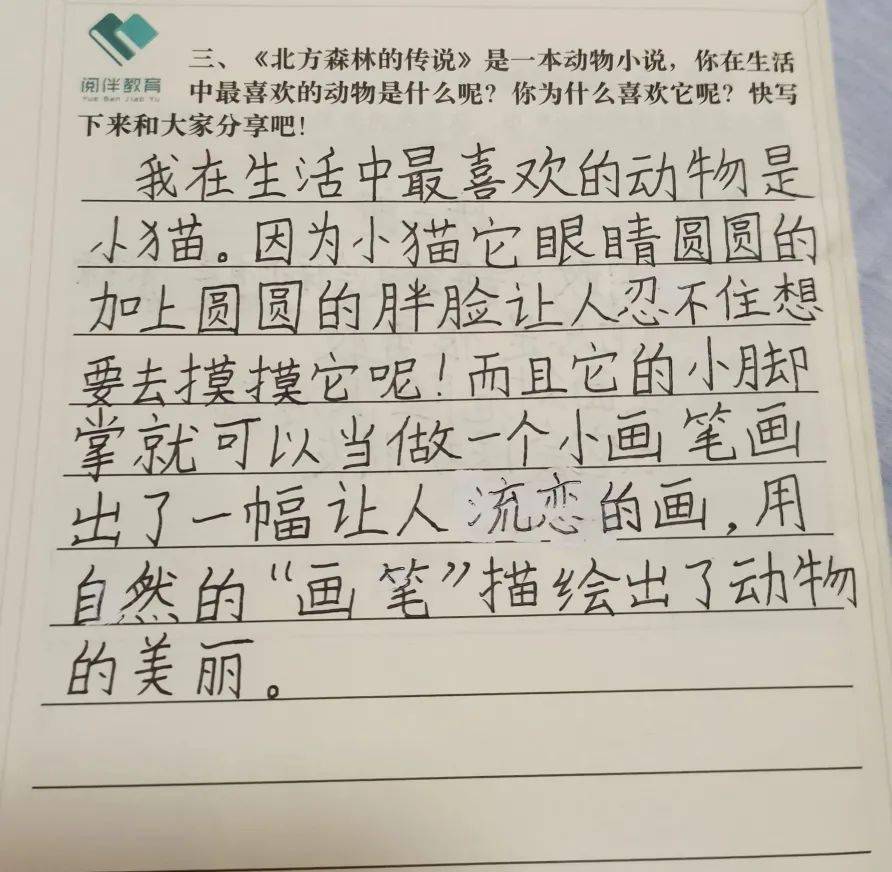 阅伴教育
Yue Ban Jiao Yu
三、《北方森林的传说》是一本动物小说，你在生活
中最喜欢的动物是什么呢？你为什么喜欢它呢？快写
下来和大家分享吧！
我在生活中最喜欢的动物是
小猫。因为小猫它眼睛圆圆的
加上圆圆的胖脸让人忍不住想
要去摸摸它呢！而且它的小脚
掌就可以当做一个小画笔画
出了一幅让人流恋的画，用
自然的“画笔”描绘出了动物
的美丽。